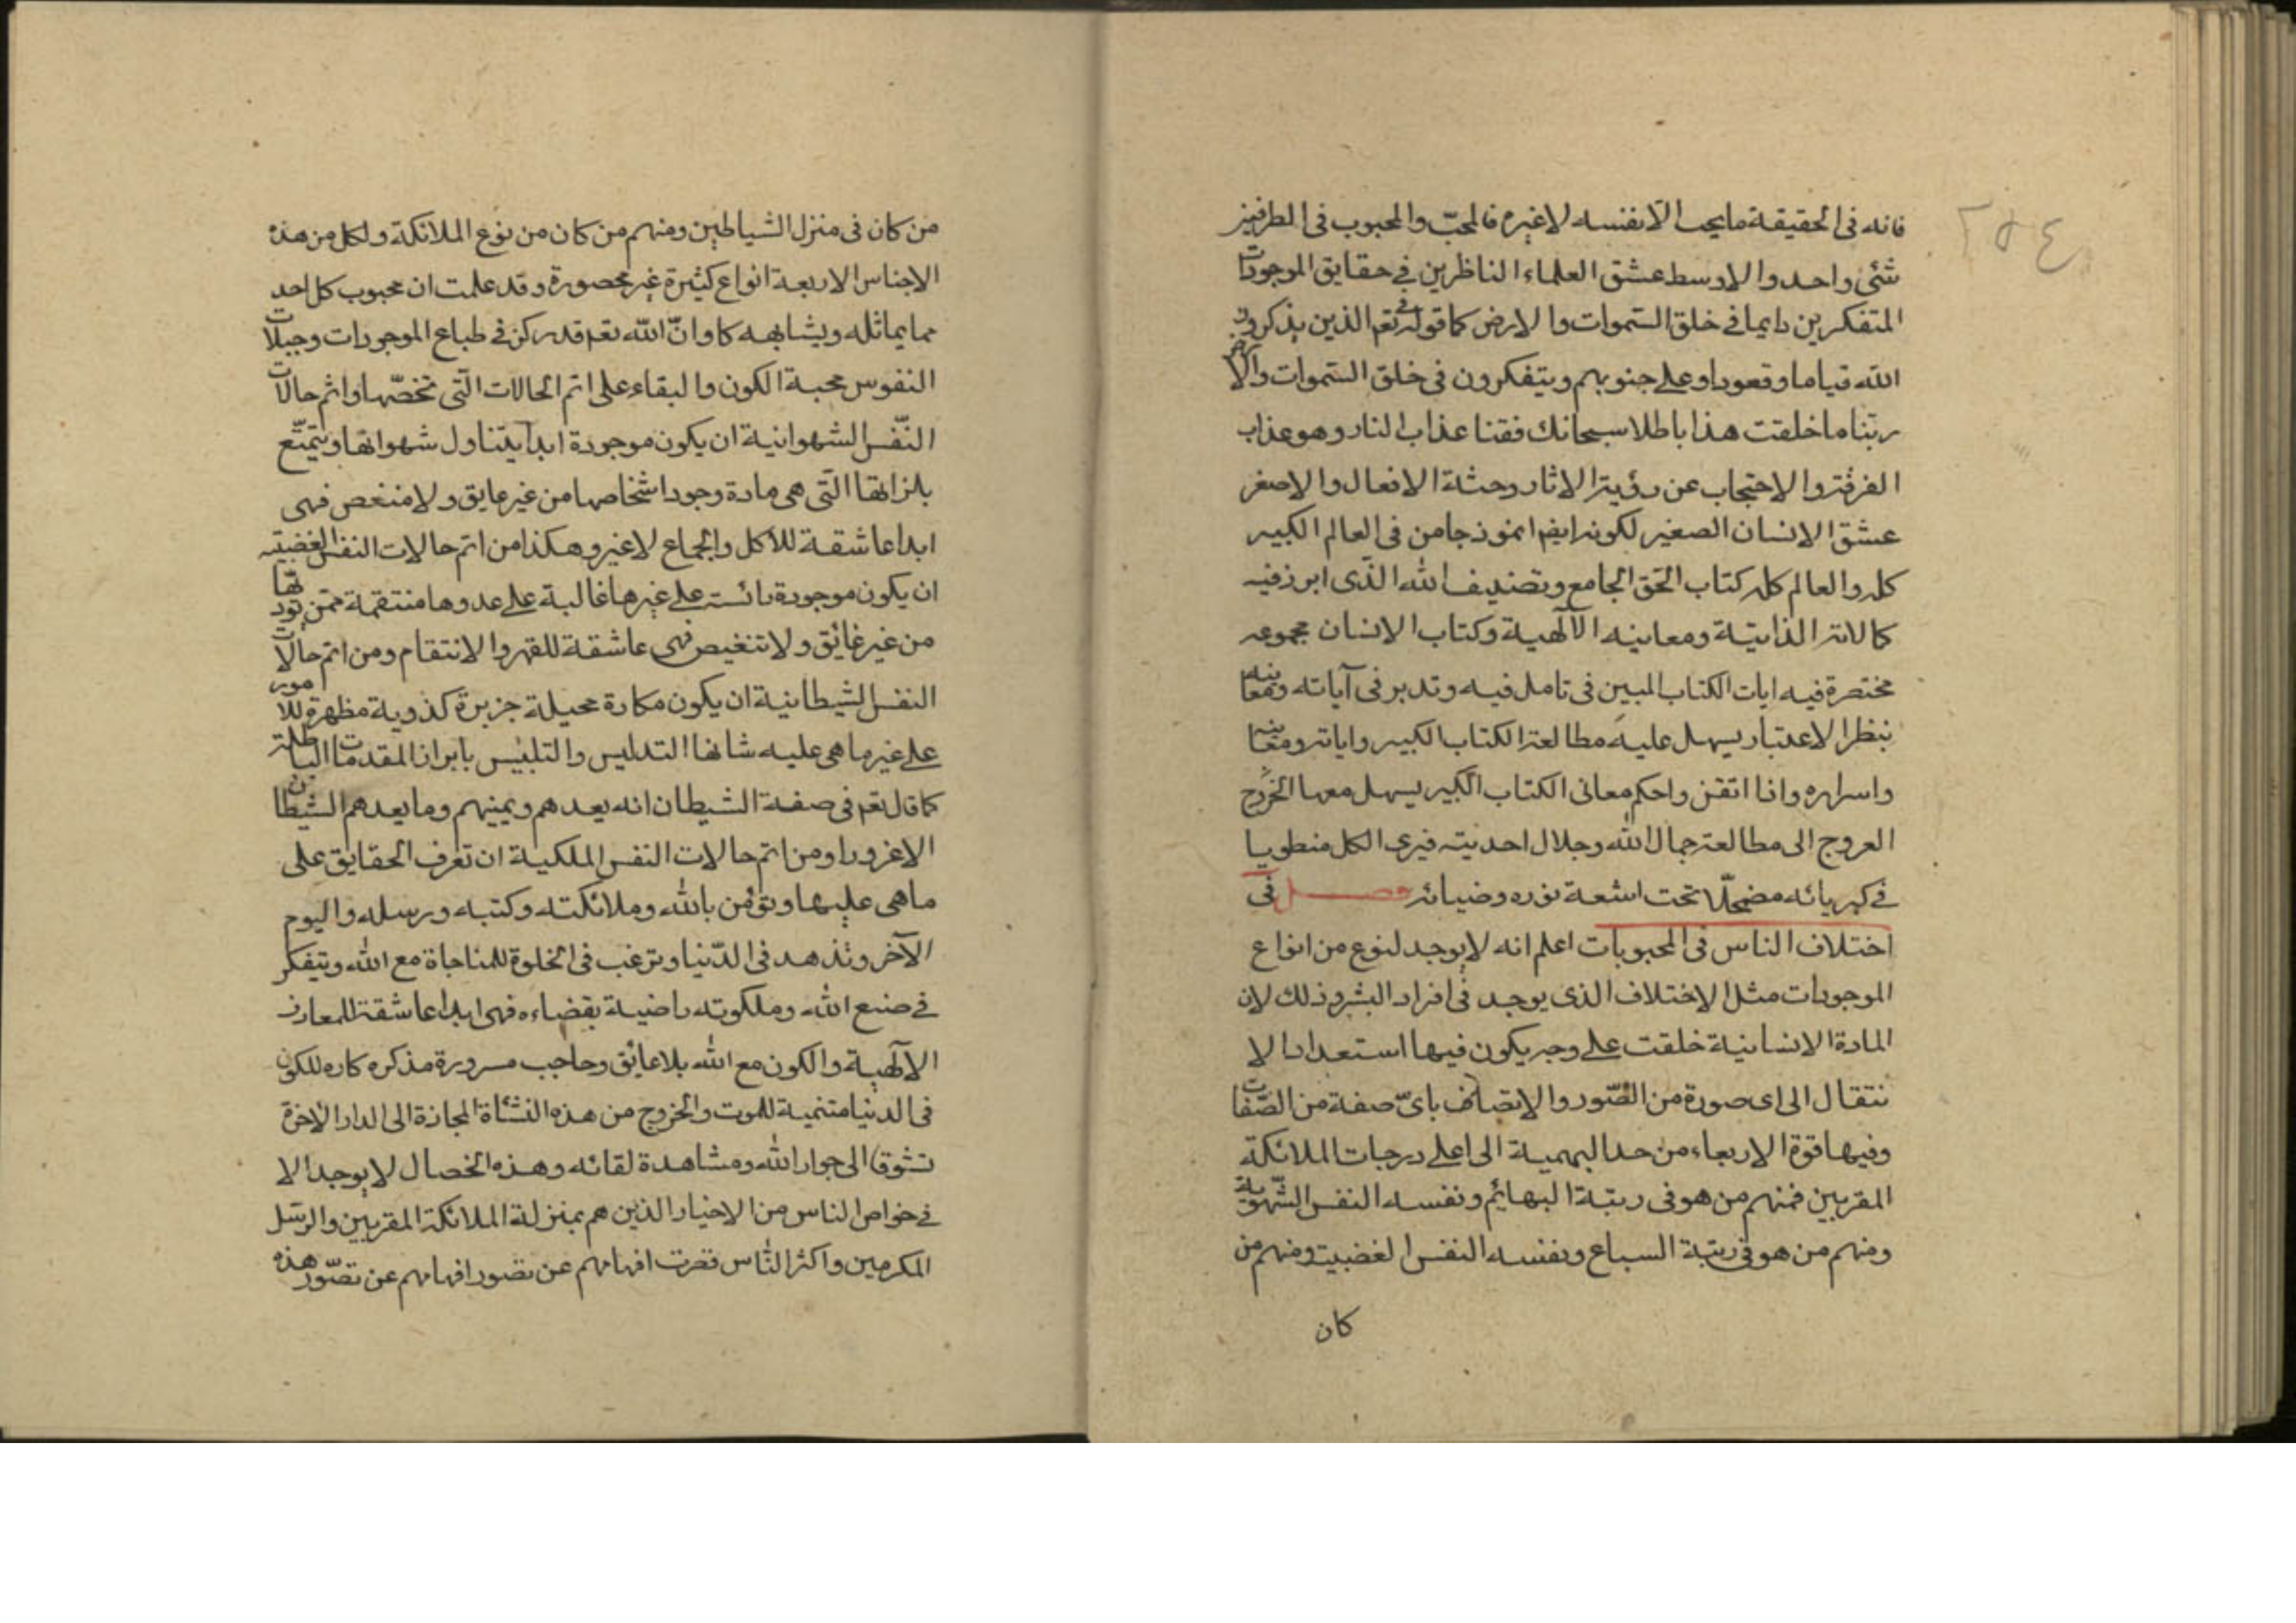 ٢٥٤
فانه فى الحقيقة ما يحب الا نفسه لا غيره فالمحبّ والمحبوب فى الطرفين
شئى واحد والاوسط عشق العلماء الناظرين فى حقايق الموجودات
المتفكرين دايما فى خلق السّموات والارض كما فى قوله تعم الذين يذكرون
الله قياما وقعودا وعلى جنوبهم ويتفكرون فى خلق السّموات والارض
ربّنا ما خلقت هذا باطلا سبحانك فقنا عذاب النار وهو عذاب
الفرقة والاحتجاب عن رؤية الاثار وحشة الافعال والاصغر
عشق الانسان الصغير لكونه ايضا انموذجا من فى العالم الكبير
كله والعالم كله كتاب الحق الجامع وتصنيف الله الذّى ابرز فيه
كمالاته الذاتيّة ومعانيه الآلهية وكتاب الانسان مجموعه
مختصرة فيه ايات الكتاب المبين فى تامل فيه وتدبر فى آياته ومعانيه
بنظر الاعتبار يسهل عليه مطالعة الكتاب الكبير واياته ومعانيه
واسراره واذا اتقن واحكم معانى الكتاب الكبير يسهل معها الخروج
العروج الى مطالعة جمال الله وجلال احديته فيرى الكل منطويا
فى كبريائه مضمحلّا تحت اشعة نوره وضيائه فصل فى
اختلاف الناس فى المحبوبات اعلم انه لا يوجد لنوع من انواع
الموجودات مثل الاختلاف الذى يوجد فى افراد البشر وذلك لان
المادة الانسانية خلقت على وجه يكون فيها استعداد الا
نتقال الى اى صورة من الصّور والاتصاف باىّ صفة من الصّفات
وفيها قوة الارتقاء من حد البهمية الى اعلى درجات الملائكة
المقربين فمنهم من هو فى رتبة البهائم ونفسه النفس الشّهوية
ومنهم من هو فى رتبة السباع ونفسه النفس الغضبية ومنهم من
كان
من كان فى منزل الشياطين ومنهم من كان من نوع الملائكة ولكل من هذه
الاجناس الاربعة انواع كثيرة غير محصورة وقد علمت ان محبوب كل احد
مما يماثله ويشابهه كما وانّ الله تعم قد ركن فى طباع الموجودات وجبلات
النفوس محبة الكون والبقاء على اتم الحالات الّتى تخصّها واتم حالات
النّفس الشهوانية ان يكون موجودة ابدا يتناول شهواتها ويتمتّع
بلزاتها الّتى هى مادة وجود اشخاصها من غير عايق ولا منغص فهى
ابدا عاشقة للاكل والجماع لا غير وهكذا من اتم حالات النفس الغضبية
ان يكون موجودة رائسة على غيرها غالبة على عدوها منتقمة ممّن
من غير غائق ولا تنغيص فهى عاشقة للقهر والانتقام ومن اتم حالات
النفس الشيطانية ان يكون مكارة محيلة جزبرة كذوبة مظهرة للامور
على غير ما هى عليه شانها التدليس والتلبيس بابراز المقدمات الباطلة
كما قال تعم فى صفة الشيطان انه يعدهم ويمنيهم وما يعدهم الشيطان
الا غرورا ومن اتم حالات النفس الملكية ان تعرف الحقايق على
ما هى عليها وتؤمن بالله وملائكته وكتبه ورسله واليوم
الآخر وتذهد فى الدّنيا وترغب فى الخلوة للمناجاة مع الله ويتفكر
فى صنع الله وملكوته راضية بقضاءه فهى ابدا عاشقة للمعارف
الآلهية والكون مع الله بلا عائق وحاجب مسرورة مذكره كاره للكون
فى الدنيا متنمية للموت والخروج من هذه النشاة المجازة الى الدار الاخرة
تشوقا الى جوار الله ومشاهدة لقائه وهذه الخصال لا يوجد الا
فى خواص الناس من الاخيار الذين هم بمنزلة الملائكة المقربين والرسل
المكرمين واكثر النّاس قصرت افهامهم عن تصور افهامهم عن تصّور هذه